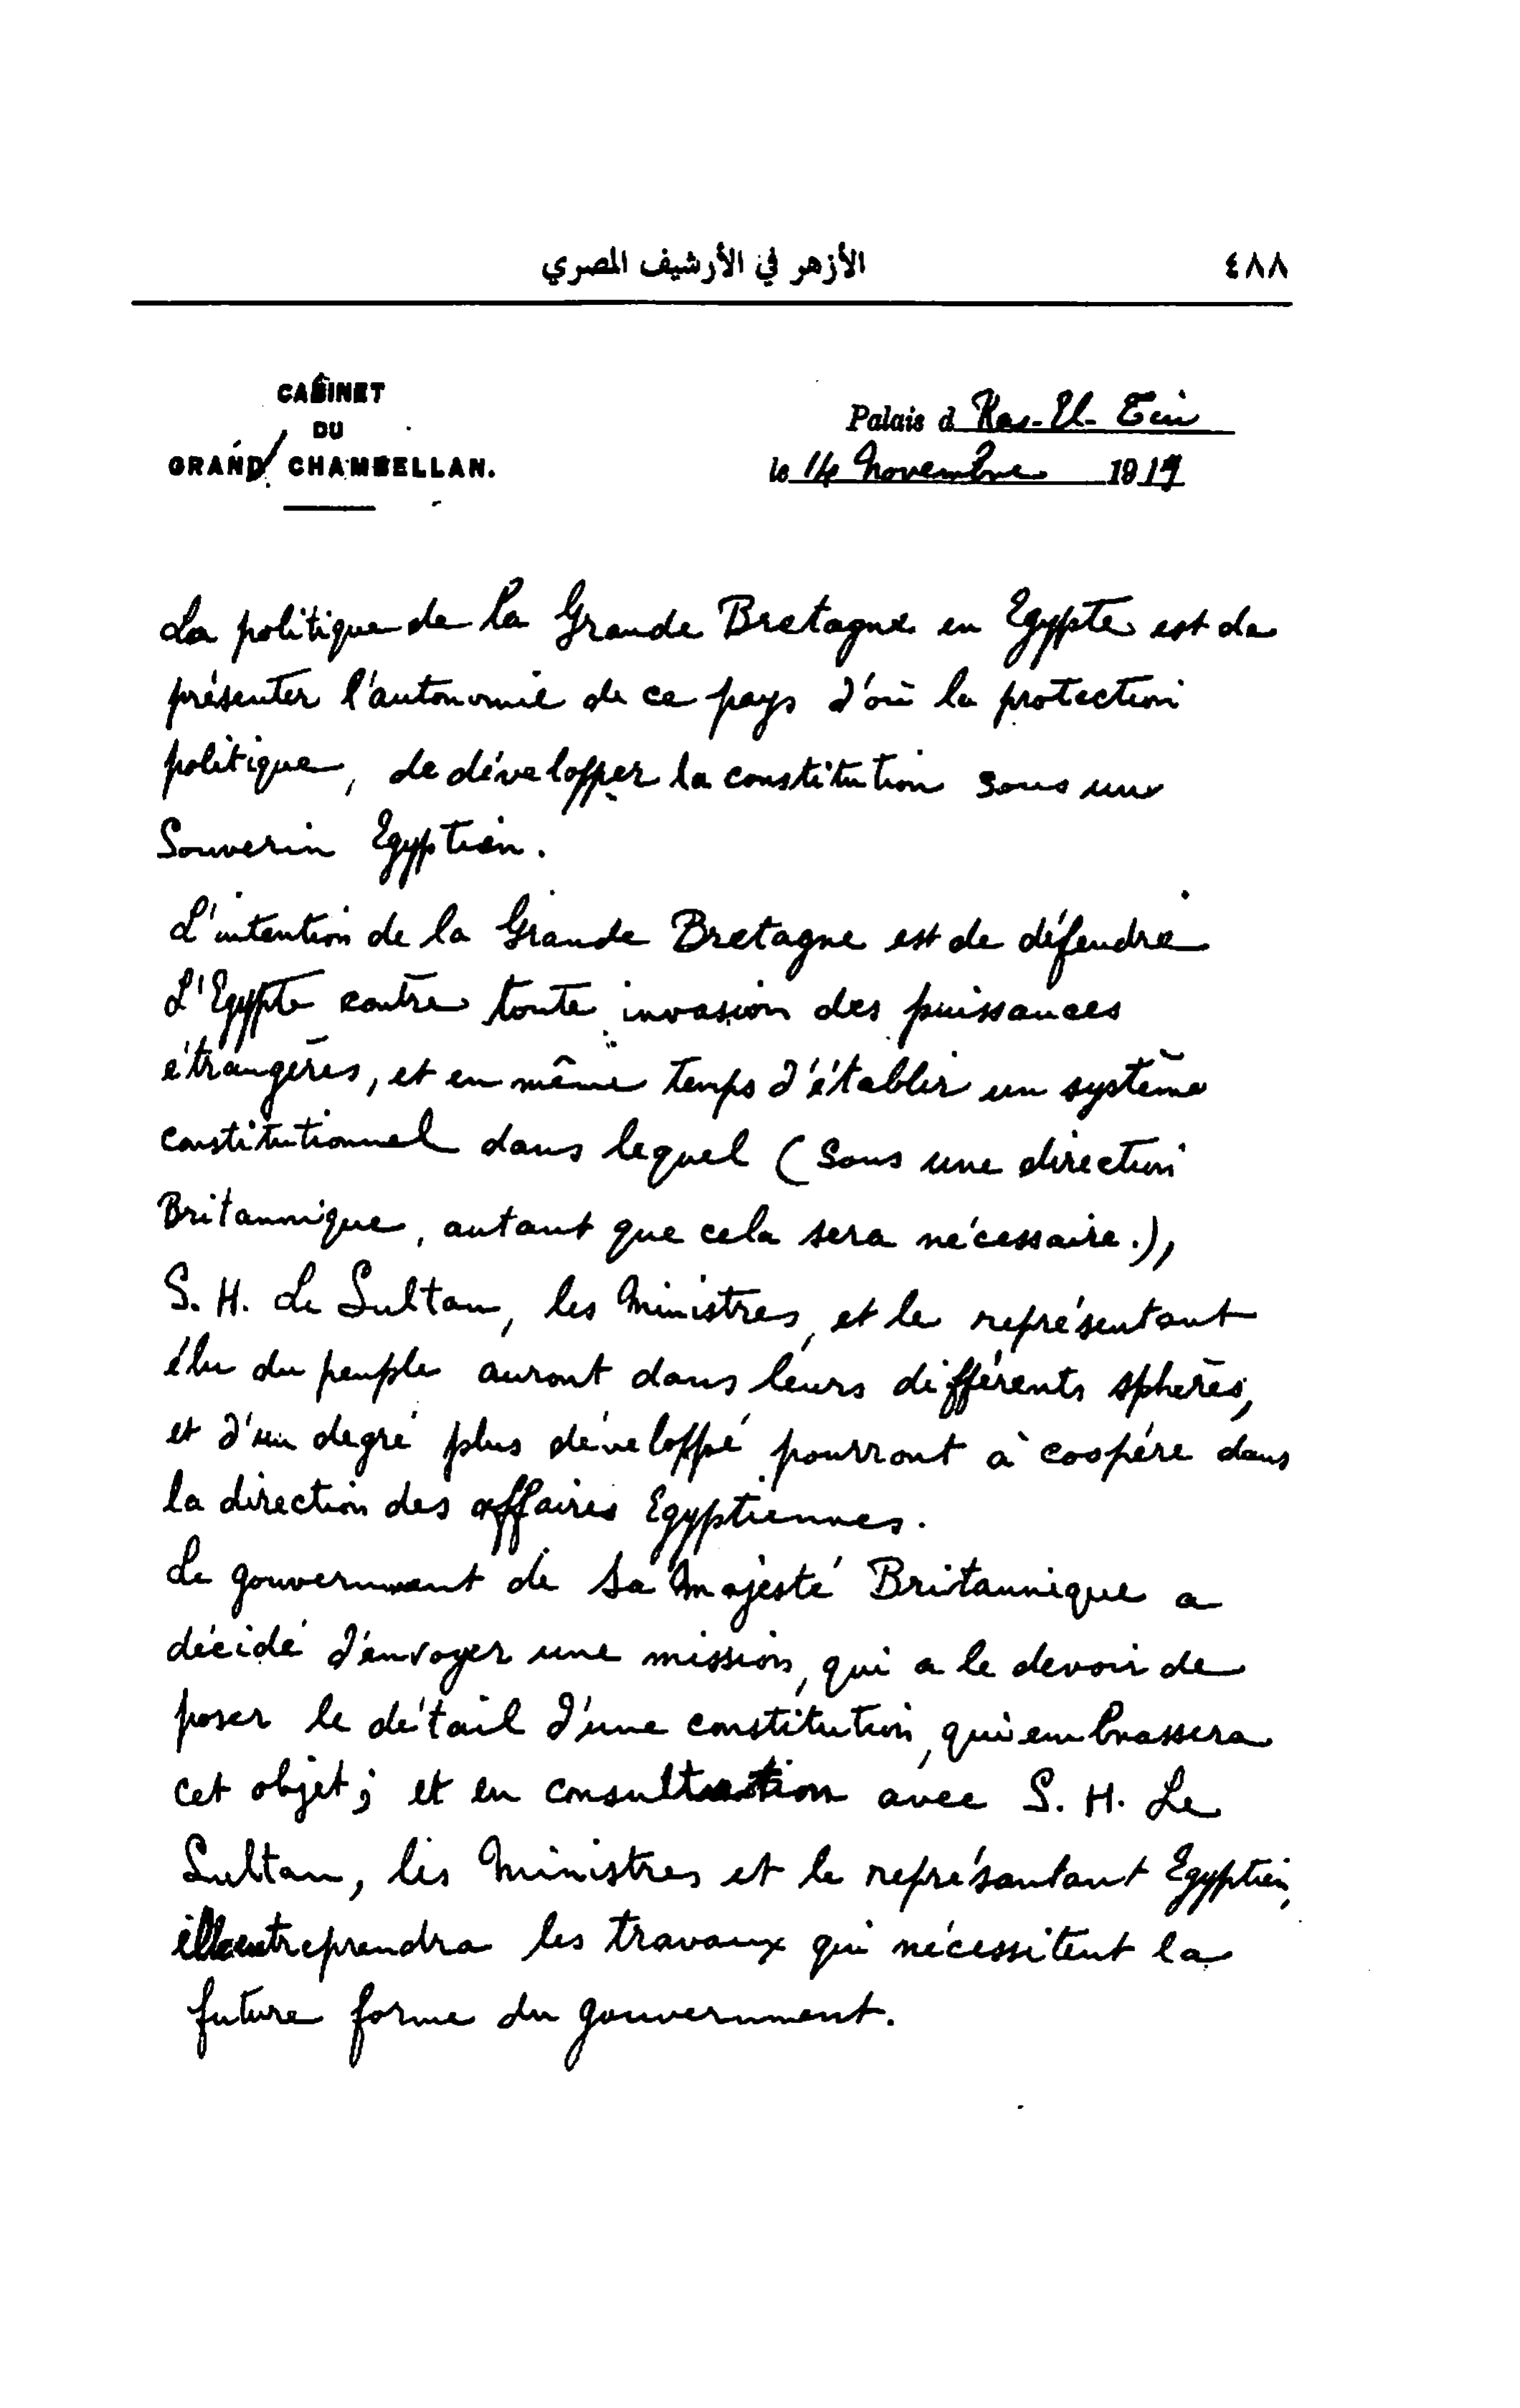 ٤٨٨
الأزهر في الأرشيف المصري
CABINET
DU
GRAND CHAMBELLAN.
Palais d Ras-El-Tin
le 14 Novembre 1919
La politique de la Grande Bretagne en Egypte est de
présenter l'autonomie de ce pays d'où la protection
politique, de développer la constitution sous une
Souverin Egyptien.
L'intention de la Grande Bretagne est de défendre
L'Egypte contre toute invasion des puissances
étrangères, et en même temps d'établir un système
constitutionnel dans lequel (Sous une direction
Britannique, autant que cela sera nécessaire.),
S. H. Le Sultan, les Ministres, et le représentant
élu du peuple auront dans leurs différents sphères,
et d'un degré plus développé pourront à coopére dans
la direction des affaires Egyptiennes.
Le gouvernment de Sa Majesté Britannique a
décidé d'envoyer une mission, qui a le devoir de
poser le détail d'une constitution, qui embrassera
cet objet; et en consultation avec S. H. Le
Sultan, les Ministres et le représantant Egyptien,
elle entreprendra les travaux qui nécessitent la
future forme du gouvernment.